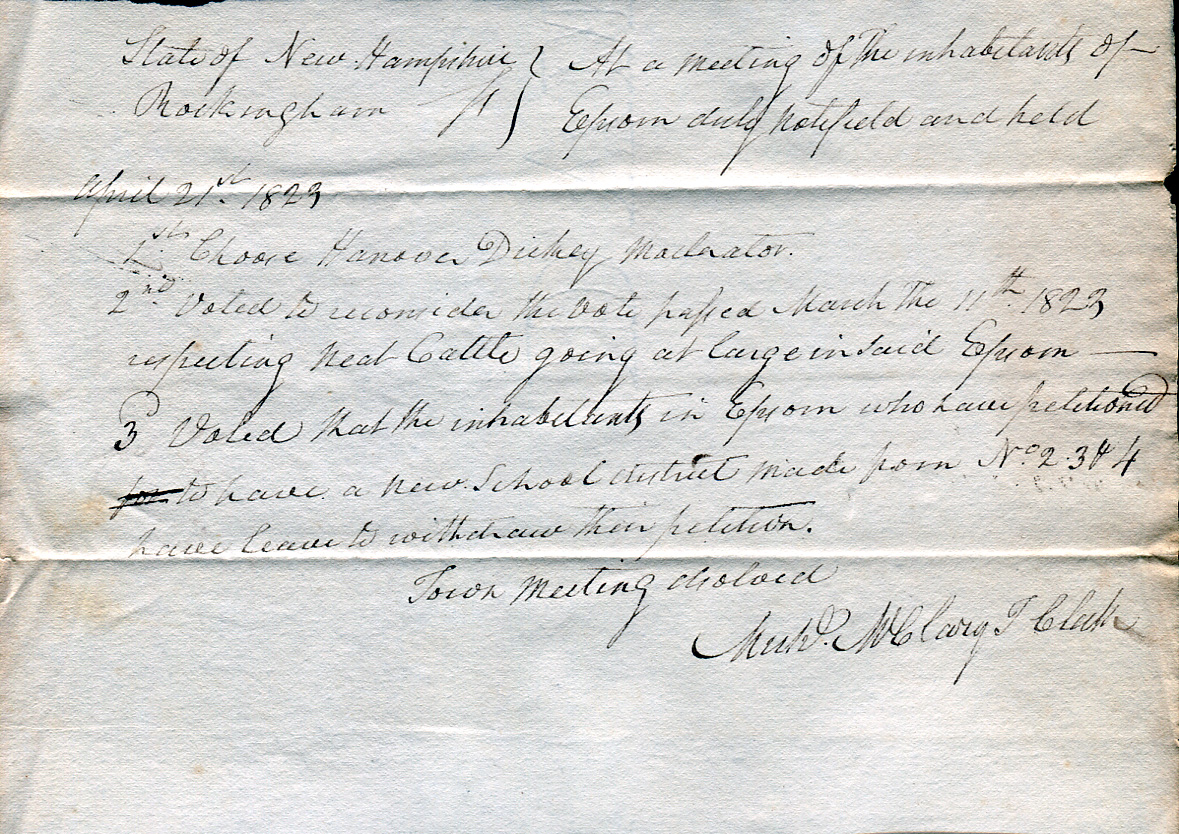 State of New Hampshire } At a meeting of the inhabitants of
Rockingham ss } Epsom duly notifield and held
April 21st 1823
1st Choose Hanover Dickey Moderator.
2nd Voted to reconsider the vote passed March the 11th 1823
respecting Neat Cattle going at large in said Epsom
3 Voted that the inhabetants in Epsom who have petitioned
for to have a new School district made from No 2. 3 & 4
have leave to withdraw their petition.
Town Meeting disolved
McClary T Clerk